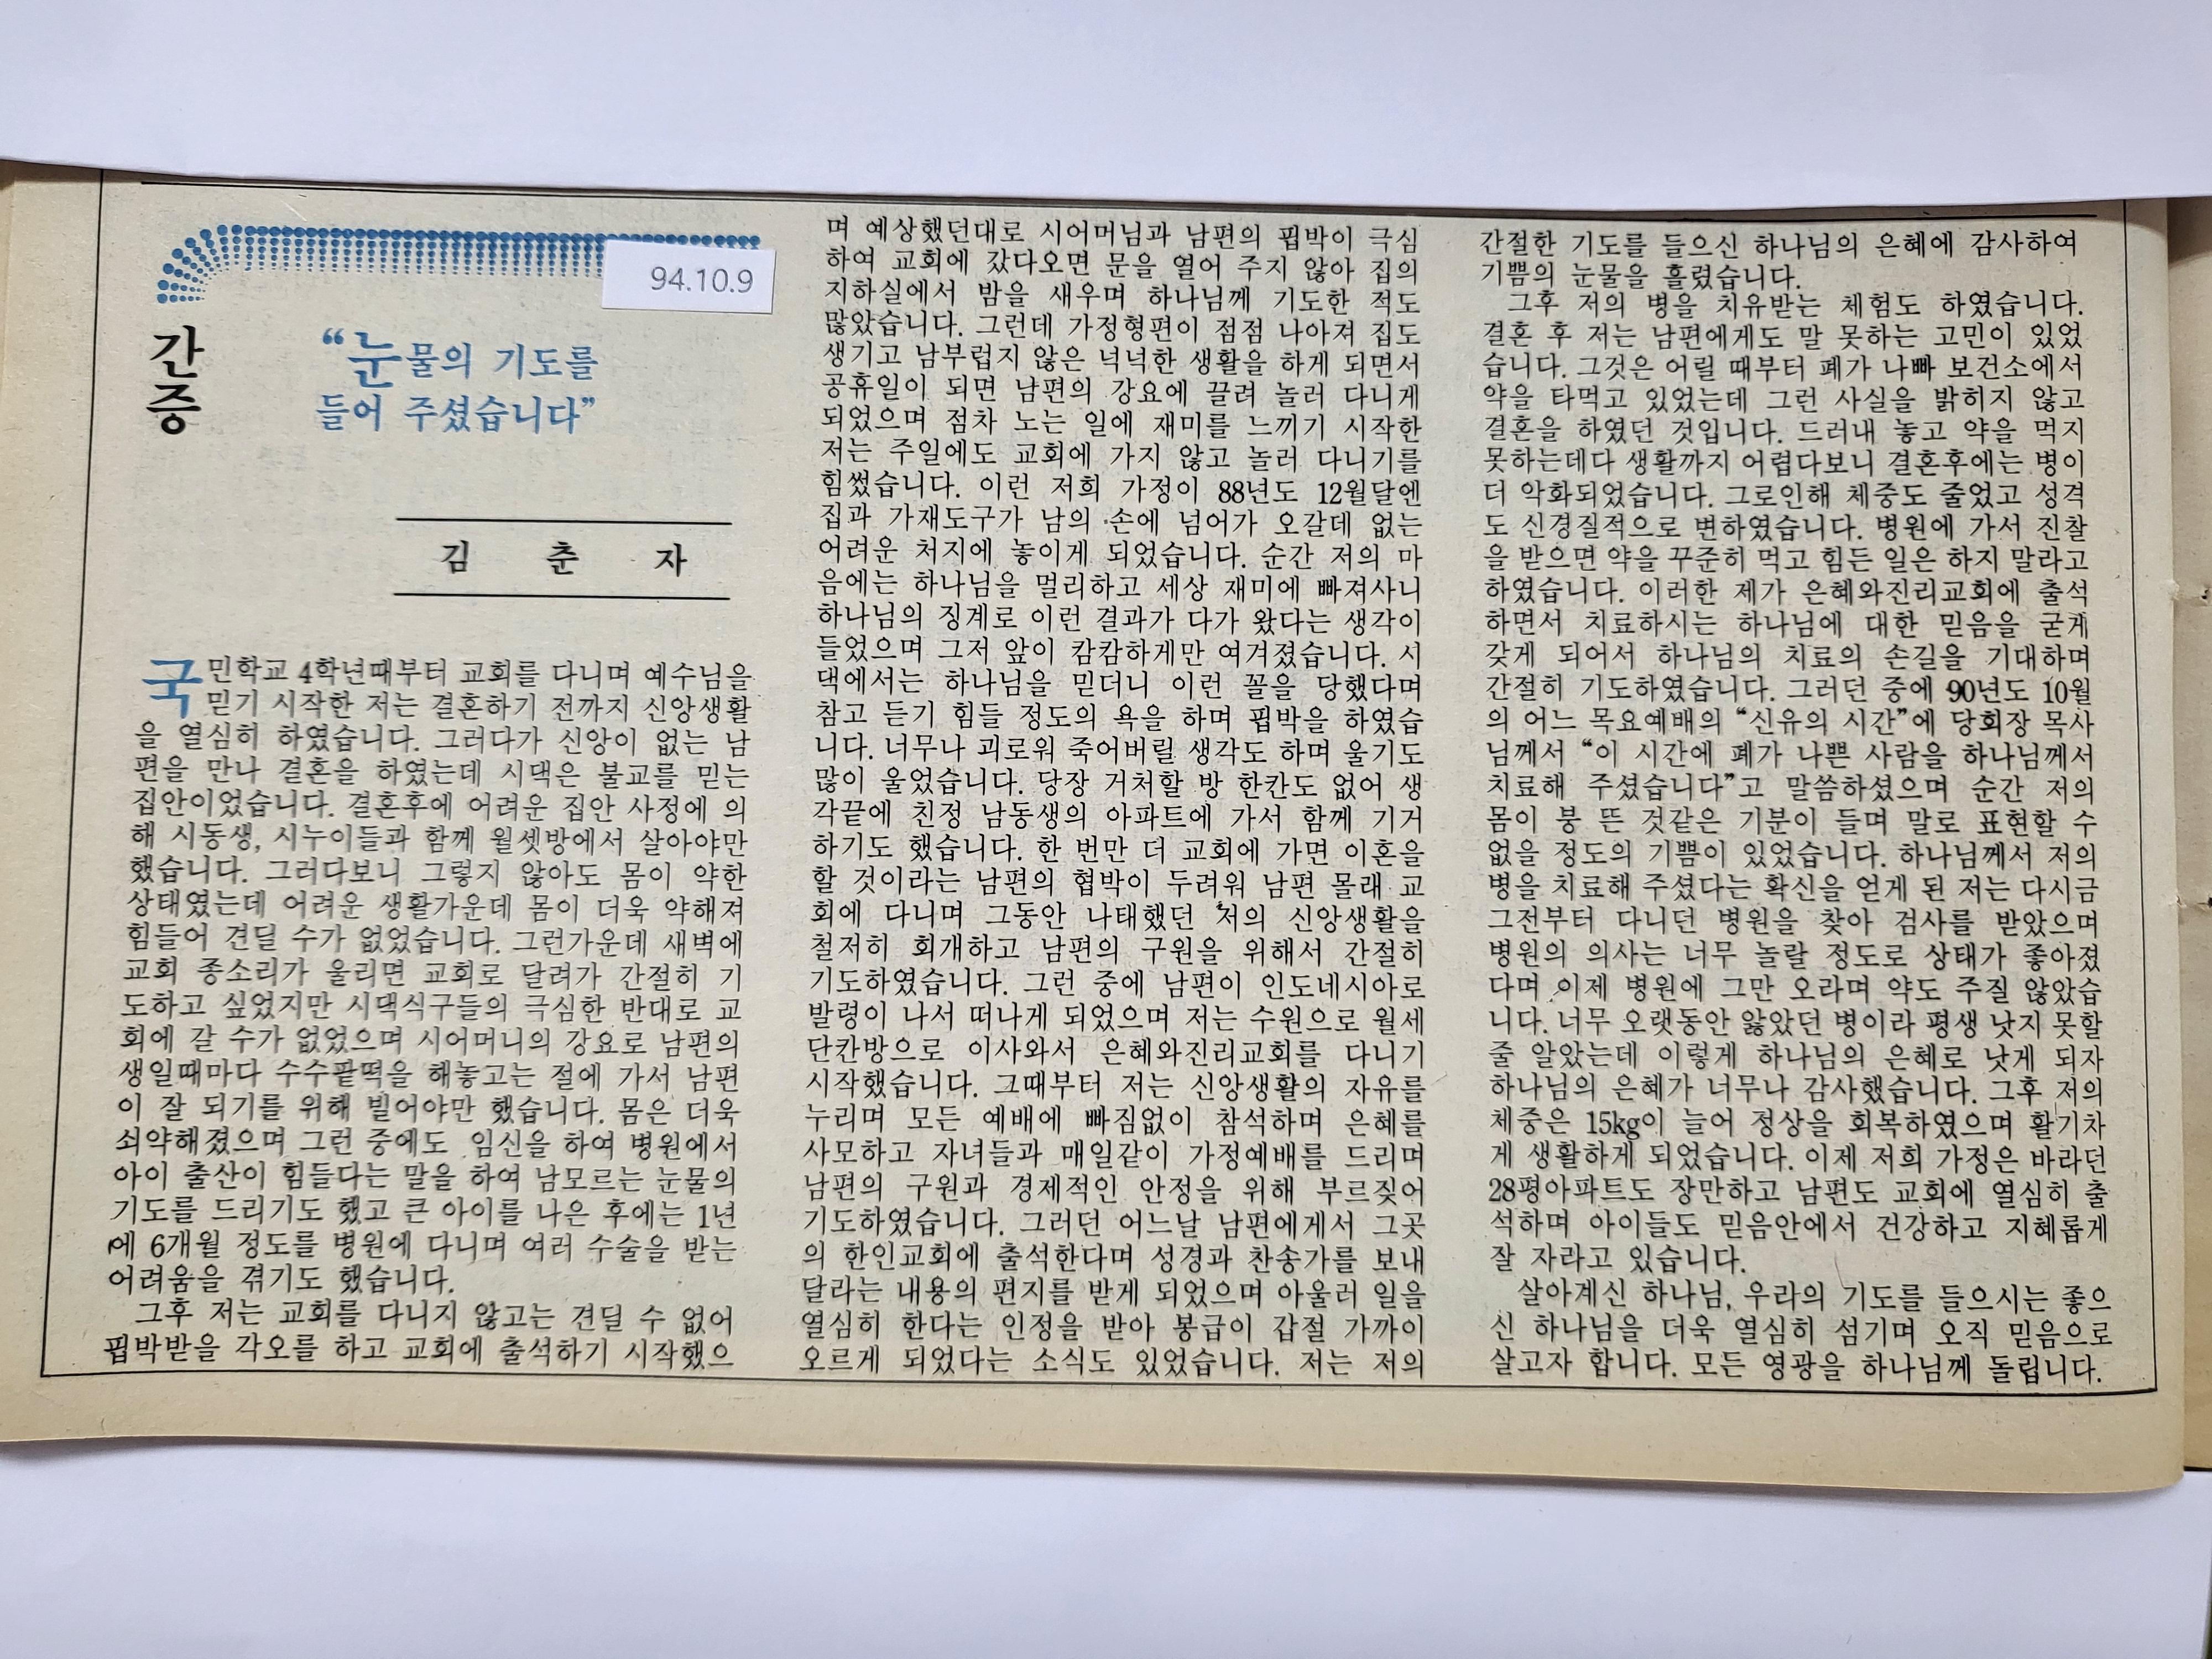 94.10.9
간증
“눈물의 기도를
들어 주셨습니다”
김 춘 자
국민학교 4학년때부터 교회를 다니며 예수님을
믿기 시작한 저는 결혼하기 전까지 신앙생활
을 열심히 하였습니다. 그러다가 신앙이 없는 남
편을 만나 결혼을 하였는데 시댁은 불교를 믿는
집안이었습니다. 결혼후에 어려운 집안 사정에 의
해 시동생, 시누이들과 함께 월셋방에서 살아야만
했습니다. 그러다보니 그렇지 않아도 몸이 약한
상태였는데 어려운 생활가운데 몸이 더욱 약해져
힘들어 견딜 수가 없었습니다. 그런가운데 새벽에
교회 종소리가 울리면 교회로 달려가 간절히 기
도하고 싶었지만 시댁식구들의 극심한 반대로 교
회에 갈 수가 없었으며 시어머니의 강요로 남편의
생일때마다 수수팥떡을 해놓고는 절에 가서 남편
이 잘 되기를 위해 빌어야만 했습니다. 몸은 더욱
쇠약해졌으며 그런 중에도 임신을 하여 병원에서
아이 출산이 힘들다는 말을 하여 남모르는 눈물의
기도를 드리기도 했고 큰 아이를 나은 후에는 1년
에 6개월 정도를 병원에 다니며 여러 수술을 받는
어려움을 겪기도 했습니다.
그후 저는 교회를 다니지 않고는 견딜 수 없어
핍박받을 각오를 하고 교회에 출석하기 시작했으
며 예상했던대로 시어머님과 남편의 핍박이 극심
하여 교회에 갔다오면 문을 열어 주지 않아 집의
지하실에서 밤을 새우며 하나님께 기도한 적도
많았습니다. 그런데 가정형편이 점점 나아져 집도
생기고 남부럽지 않은 넉넉한 생활을 하게 되면서
공휴일이 되면 남편의 강요에 끌려 놀러 다니게
되었으며 점차 노는 일에 재미를 느끼기 시작한
저는 주일에도 교회에 가지 않고 놀러 다니기를
힘썼습니다. 이런 저희 가정이 88년도 12월달엔
집과 가재도구가 남의 손에 넘어가 오갈데 없는
어려운 처지에 놓이게 되었습니다. 순간 저의 마
음에는 하나님을 멀리하고 세상 재미에 빠져사니
하나님의 징계로 이런 결과가 다가 왔다는 생각이
들었으며 그저 앞이 캄캄하게만 여겨졌습니다. 시
댁에서는 하나님을 믿더니 이런 꼴을 당했다며
참고 듣기 힘들 정도의 욕을 하며 핍박을 하였습
니다. 너무나 괴로워 죽어버릴 생각도 하며 울기도
많이 울었습니다. 당장 거처할 방 한칸도 없어 생
각끝에 친정 남동생의 아파트에 가서 함께 기거
하기도 했습니다. 한 번만 더 교회에 가면 이혼을
할 것이라는 남편의 협박이 두려워 남편 몰래 교
회에 다니며 그동안 나태했던 저의 신앙생활을
철저히 회개하고 남편의 구원을 위해서 간절히
기도하였습니다. 그런 중에 남편이 인도네시아로
발령이 나서 떠나게 되었으며 저는 수원으로 월세
단칸방으로 이사와서 은혜와진리교회를 다니기
시작했습니다. 그때부터 저는 신앙생활의 자유를
누리며 모든 예배에 빠짐없이 참석하며 은혜를
사모하고 자녀들과 매일같이 가정예배를 드리며
남편의 구원과 경제적인 안정을 위해 부르짖어
기도하였습니다. 그러던 어느날 남편에게서 그곳
의 한인교회에 출석한다며 성경과 찬송가를 보내
달라는 내용의 편지를 받게 되었으며 아울러 일을
열심히 한다는 인정을 받아 봉급이 갑절 가까이
오르게 되었다는 소식도 있었습니다. 저는 저의
간절한 기도를 들으신 하나님의 은혜에 감사하여
기쁨의 눈물을 흘렸습니다.
그후 저의 병을 치유받는 체험도 하였습니다.
결혼 후 저는 남편에게도 말 못하는 고민이 있었
습니다. 그것은 어릴 때부터 폐가 나빠 보건소에서
약을 타먹고 있었는데 그런 사실을 밝히지 않고
결혼을 하였던 것입니다. 드러내 놓고 약을 먹지
못하는데다 생활까지 어렵다보니 결혼후에는 병이
더 악화되었습니다. 그로인해 체중도 줄었고 성격
도 신경질적으로 변하였습니다. 병원에 가서 진찰
을 받으면 약을 꾸준히 먹고 힘든 일은 하지 말라고
하였습니다. 이러한 제가 은혜와진리교회에 출석
하면서 치료하시는 하나님에 대한 믿음을 굳게
갖게 되어서 하나님의 치료의 손길을 기대하며
간절히 기도하였습니다. 그러던 중에 90년도 10월
의 어느 목요예배의 “신유의 시간”에 당회장 목사
님께서 “이 시간에 폐가 나쁜 사람을 하나님께서
치료해 주셨습니다”고 말씀하셨으며 순간 저의
몸이 붕 뜬 것같은 기분이 들며 말로 표현할 수
없을 정도의 기쁨이 있었습니다. 하나님께서 저의
병을 치료해 주셨다는 확신을 얻게 된 저는 다시금
그전부터 다니던 병원을 찾아 검사를 받았으며
병원의 의사는 너무 놀랄 정도로 상태가 좋아졌
다며 이제 병원에 그만 오라며 약도 주질 않았습
니다. 너무 오랫동안 앓았던 병이라 평생 낫지 못할
줄 알았는데 이렇게 하나님의 은혜로 낫게 되자
하나님의 은혜가 너무나 감사했습니다. 그후 저의
체중은 15kg이 늘어 정상을 회복하였으며 활기차
게 생활하게 되었습니다. 이제 저희 가정은 바라던
28평아파트도 장만하고 남편도 교회에 열심히 출
석하며 아이들도 믿음안에서 건강하고 지혜롭게
잘 자라고 있습니다.
살아계신 하나님, 우라의 기도를 들으시는 좋으
신 하나님을 더욱 열심히 섬기며 오직 믿음으로
살고자 합니다. 모든 영광을 하나님께 돌립니다.